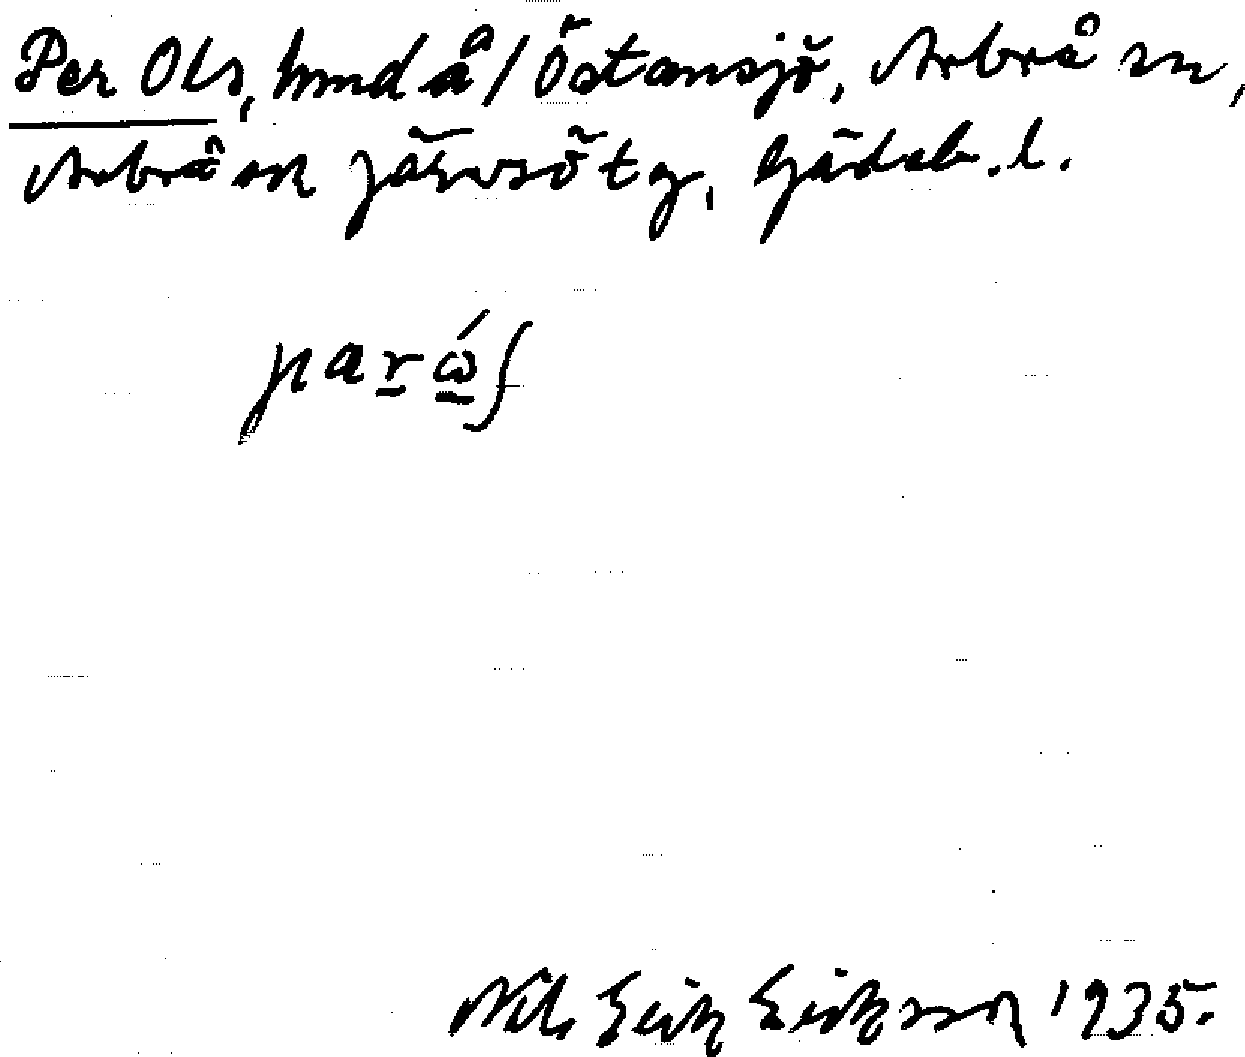 Per Ols, hmd å / Östansjö, Arbrå sn,
Arbrå o Järvsö tg, Gävleb. l.
parώʃ
Nils Erik Eriksson 1935.